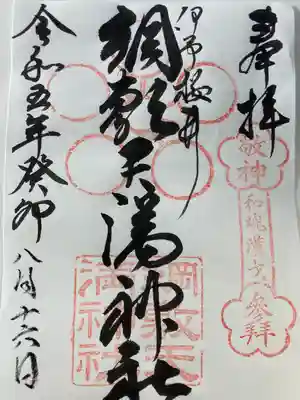 奉拝
敬神
和魂漢才
參拜
伊予櫻井
綱敷天満神社
綱敷天
満神社
令和五年癸卯八月十六日